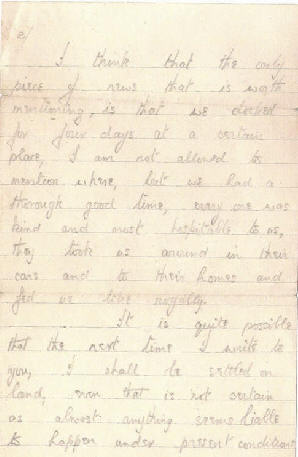 2/
I think that the only
piece of news that is worth
mentioning, is that we docked
for four days at a certain
place, I am not allowed to
mention where, but we had a
thorough good time, every one was
kind and most hospitable to us,
they took us around in their
cars and to their homes and
fed us like royalty.
It is quite possible
that the next time I write to
you, I shall be settled on
land, even that is not certain
as almost anything seems liable
to happen under present conditions